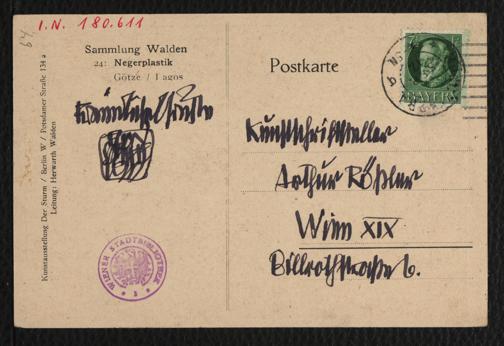 I.N. 180.611
64
Sammlung Walden
24: Negerplastik
Götze / Lagos
Kunstausstellung Der Sturm / Berlin W / Potsdamer Straße 134 a
Leitung: Herwarth Walden
WIENER STADTBIBLIOTHEK
Postkarte
BAYERN
Kunstschriftsteller
Arthur Rößler
Wien XIX
Billrothstraße 6.